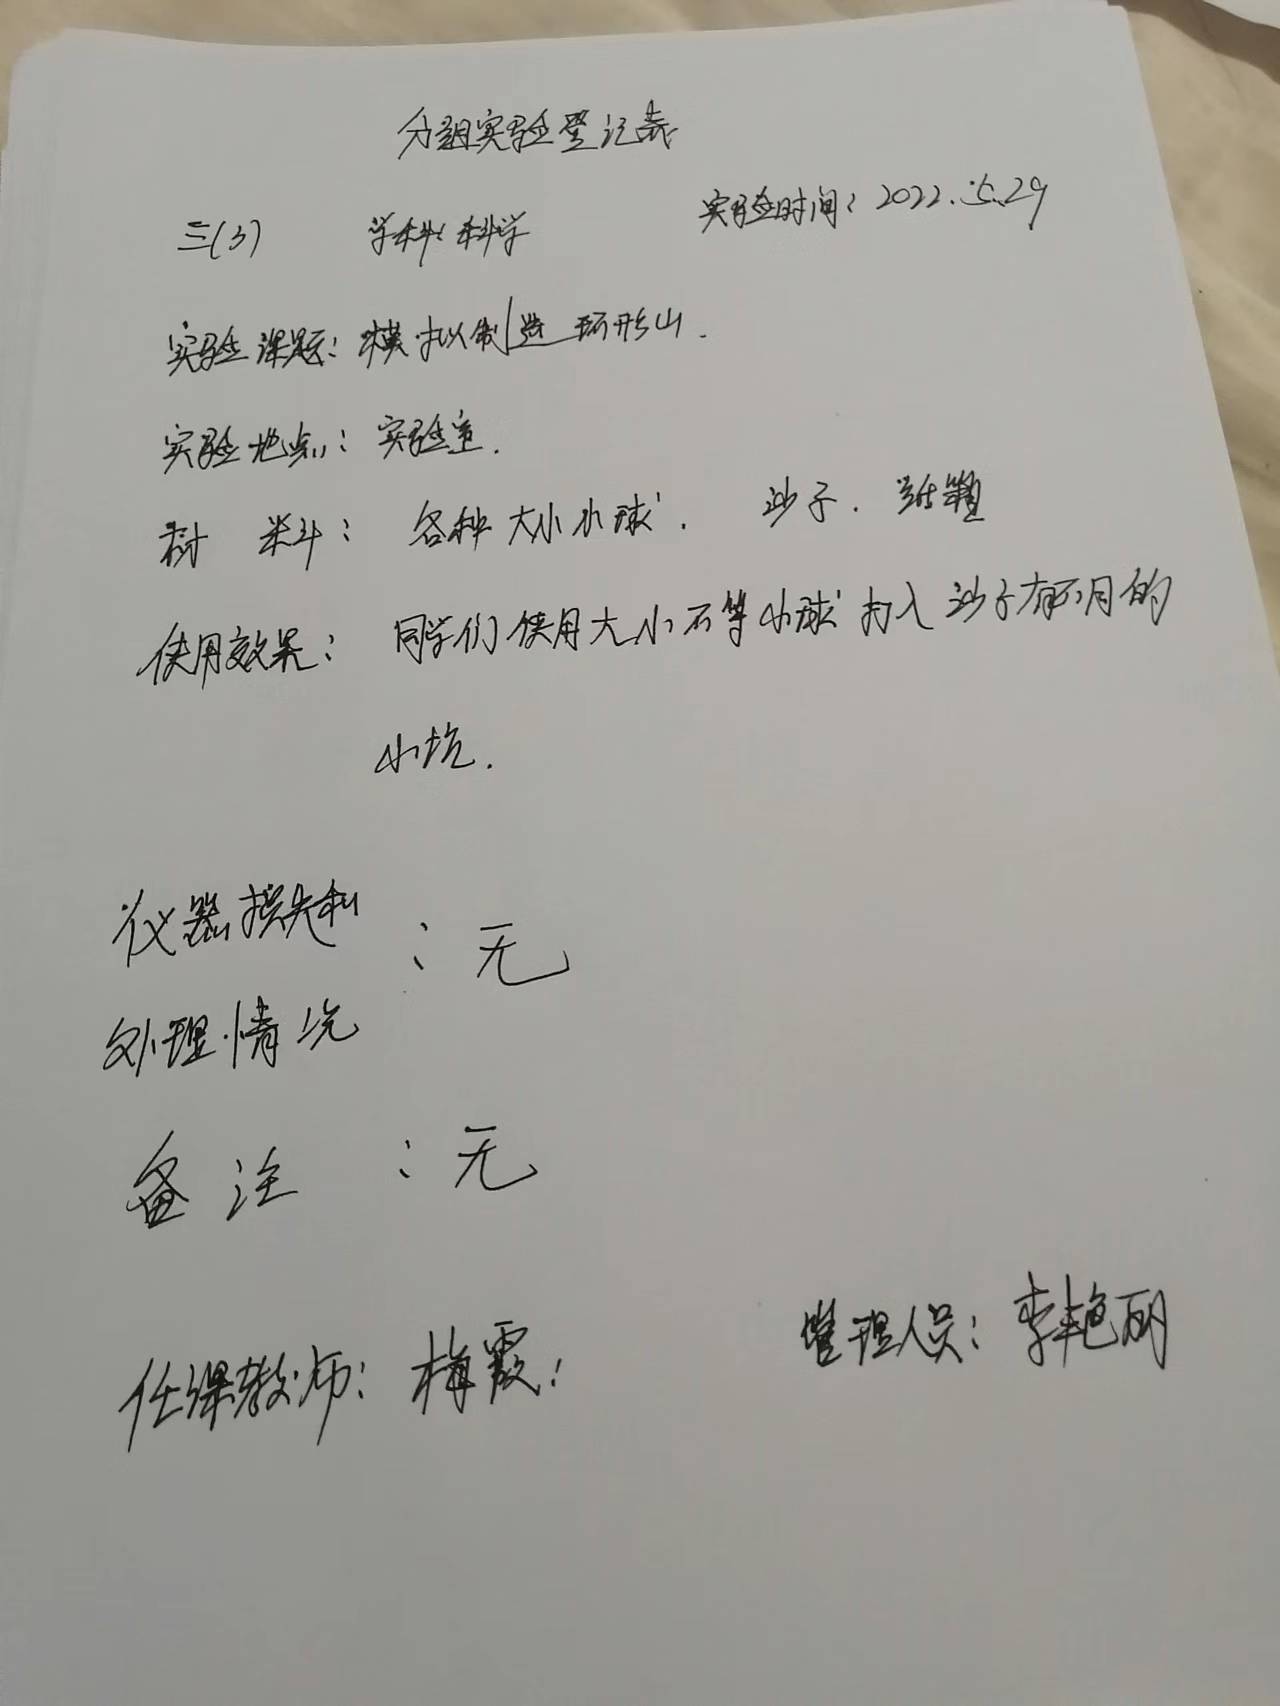 分组实验登记表
三(3) 学科:科学 实验时间:2022.5.29
实验课题:模拟制造环形山.
实验地点:实验室.
材 料: 各种大小小球. 沙子.
使用效果: 同学们使用大小不等小球打入沙子有不同的
小坑.
仪器损失和
:无
处理情况
备注 :无
任课教师:梅霞: 管理人员:李艳丽